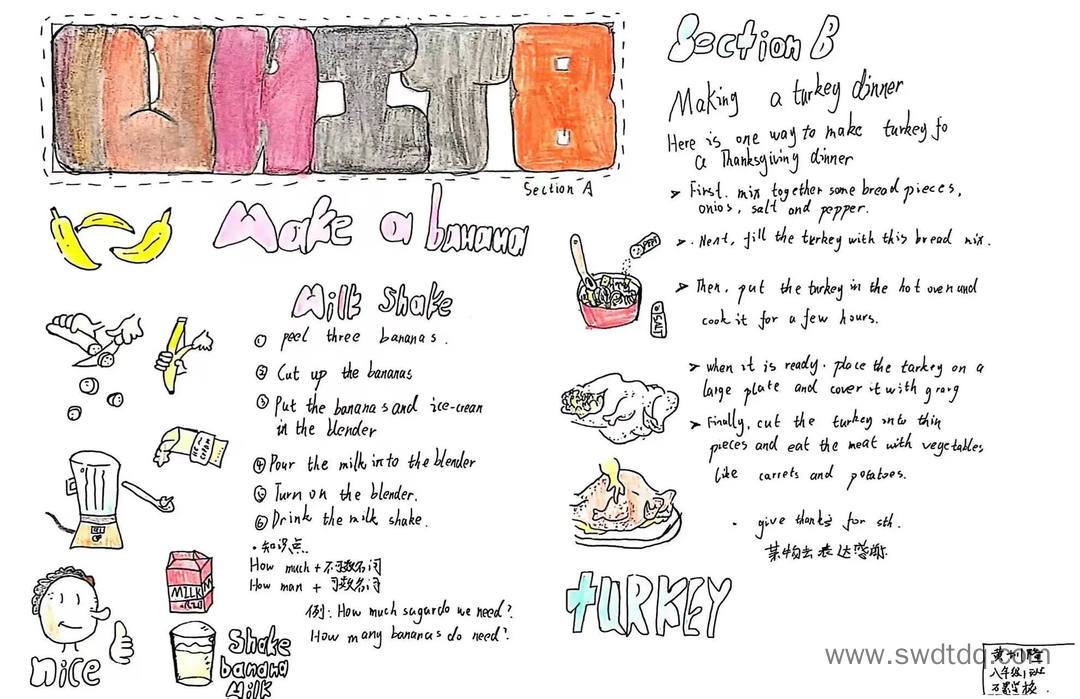 UNIT 8
Section A
Make a banana
Milk Shake
① peel three bananas.
② Cut up the bananas
③ Put the bananas and ice-crean
in the blender
④ Pour the milk into the blender
⑤ Turn on the blender.
⑥ Drink the milk shake.
·知识点
How much + 不可数名词
How man + 可数名词
例: How much sugar do we need?
How many bananas do need?
ICE CREAM
MILK
nice
Shake
banana
Milk
Section B
Making a turkey dinner
Here is one way to make turkey fo
a Thanksgiving dinner
➢ First. mix together some bread pieces,
onios, salt and pepper.
➢ . Next, fill the turkey with this bread mix.
➢ Then, put the turkey in the hot oven and
cook it for a few hours.
➢ when it is ready. place the tarkey on a
large plate and cover it with gravy
➢ Finally, cut the turkey into thin
pieces and eat the meat with vegetables
like carrets and potatoes.
· give thanks for sth.
PEPE
SALT
TURKEY
www.swdtdq.com
八年级1班